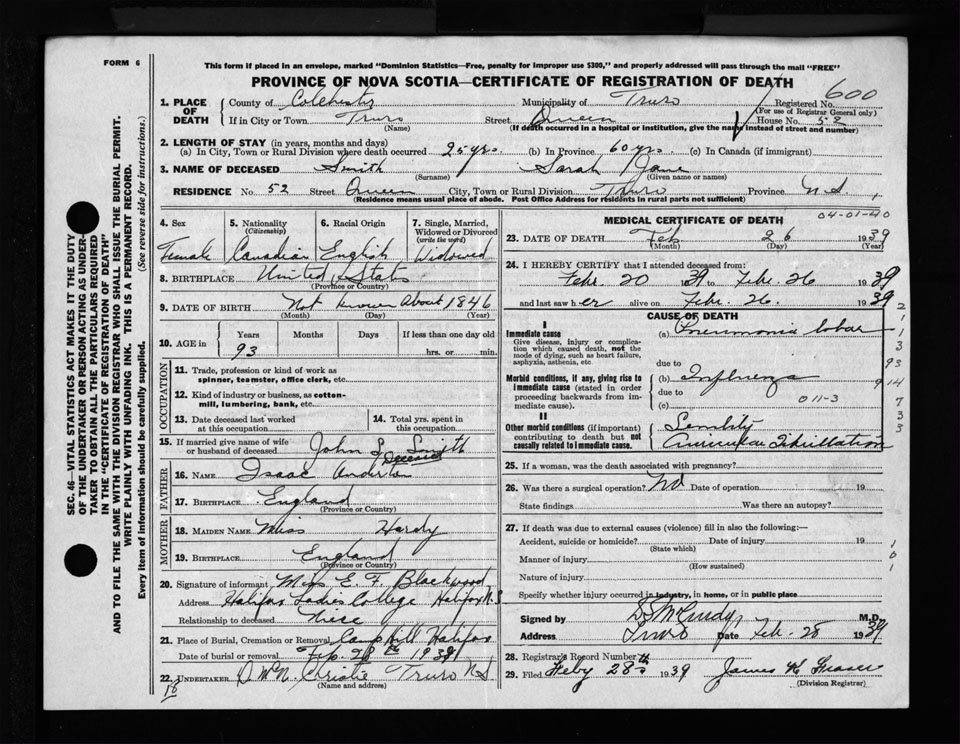 FORM 6
This form if placed in an envelope, marked "Dominion Statistics—Free, penalty for improper use $300," and properly addressed will pass through the mail "FREE"
PROVINCE OF NOVA SCOTIA—CERTIFICATE OF REGISTRATION OF DEATH
1. PLACE OF DEATH County of Colchester Municipality of Truro Registered No. 600
(For use of Registrar General only)
If in City or Town Truro Street Queen House No. 52
(Name) (If death occurred in a hospital or institution, give the name instead of street and number)
2. LENGTH OF STAY (in years, months and days)
(a) In City, Town or Rural Division where death occurred 25 yrs. (b) In Province 60 yrs. (c) In Canada (if immigrant)
3. NAME OF DECEASED Smith Sarah Jane
(Surname) (Given name or names)
RESIDENCE No. 52 Street Queen City, Town or Rural Division Truro Province N.S.
(Residence means usual place of abode. Post Office Address for residents in rural parts not sufficient)
4. Sex 5. Nationality 6. Racial Origin 7. Single, Married,
(Citizenship) Widowed or Divorced
(write the word)
Female Canadian English Widowed
8. BIRTHPLACE United States
(Province or Country)
9. DATE OF BIRTH Not known About 1846
(Month) (Day) (Year)
10. AGE in Years Months Days If less than one day old
93 hrs. or min.
OCCUPATION
11. Trade, profession or kind of work as
spinner, teamster, office clerk, etc.
12. Kind of industry or business, as cotton-
mill, lumbering, bank, etc.
13. Date deceased last worked 14. Total yrs. spent in
at this occupation this occupation
15. If married give name of wife
or husband of deceased John S. Smith
Deceased
FATHER
16. NAME Isaac Anderton
17. BIRTHPLACE England
(Province or Country)
MOTHER
18. MAIDEN NAME Miss Hardy
19. BIRTHPLACE England
(Province or Country)
20. Signature of informant Miss E. F. Blackwood
Address Halifax Ladies College Halifax N.S
Relationship to deceased Niece
21. Place of Burial, Cremation or Removal Camp Hill Halifax
Date of burial or removal Feb. 28th 1939
22. UNDERTAKER Christie Truro N.S
(Name and address)
MEDICAL CERTIFICATE OF DEATH
04-01-40
23. DATE OF DEATH Feb 26 1939
(Month) (Day) (Year)
24. I HEREBY CERTIFY that I attended deceased from:
Febr. 20 1939 to Febr. 26 1939
and last saw her alive on Febr. 26. 1939
CAUSE OF DEATH
I
Immediate cause (a) Pneumonia lobar
Give disease, injury or complica-
tion which caused death, not the
mode of dying, such as heart failure,
asphyxia, asthenia, etc. due to
Morbid conditions, if any, giving rise to (b) Influenza
immediate cause (stated in order due to
proceeding backwards from im- (c) 011-3
mediate cause).
II
Other morbid conditions (if important) Senility
contributing to death but not Auricular Fibrillation
causally related to immediate cause.
2
1
1
3
93
914
7
3
3
25. If a woman, was the death associated with pregnancy?
26. Was there a surgical operation? No Date of operation 19
State findings Was there an autopsy?
27. If death was due to external causes (violence) fill in also the following:—
Accident, suicide or homicide? Date of injury 19
(State which)
Manner of injury
(How sustained)
Nature of injury
1
0
1
Specify whether injury occurred in industry, in home, or in public place
Signed by M.D.
Address Truro Date Feb. 28 1939
28. Registrar's Record Number
29. Filed Feby 28th 1939 James K. Fraser
(Division Registrar)
SEC. 46—VITAL STATISTICS ACT MAKES IT THE DUTY
OF THE UNDERTAKER OR PERSON ACTING AS UNDER-
TAKER TO OBTAIN ALL THE PARTICULARS REQUIRED
IN THE "CERTIFICATE OF REGISTRATION OF DEATH"
AND TO FILE THE SAME WITH THE DIVISION REGISTRAR WHO SHALL ISSUE THE BURIAL PERMIT.
WRITE PLAINLY WITH UNFADING INK. THIS IS A PERMANENT RECORD.
Every item of information should be carefully supplied. (See reverse side for instructions.)